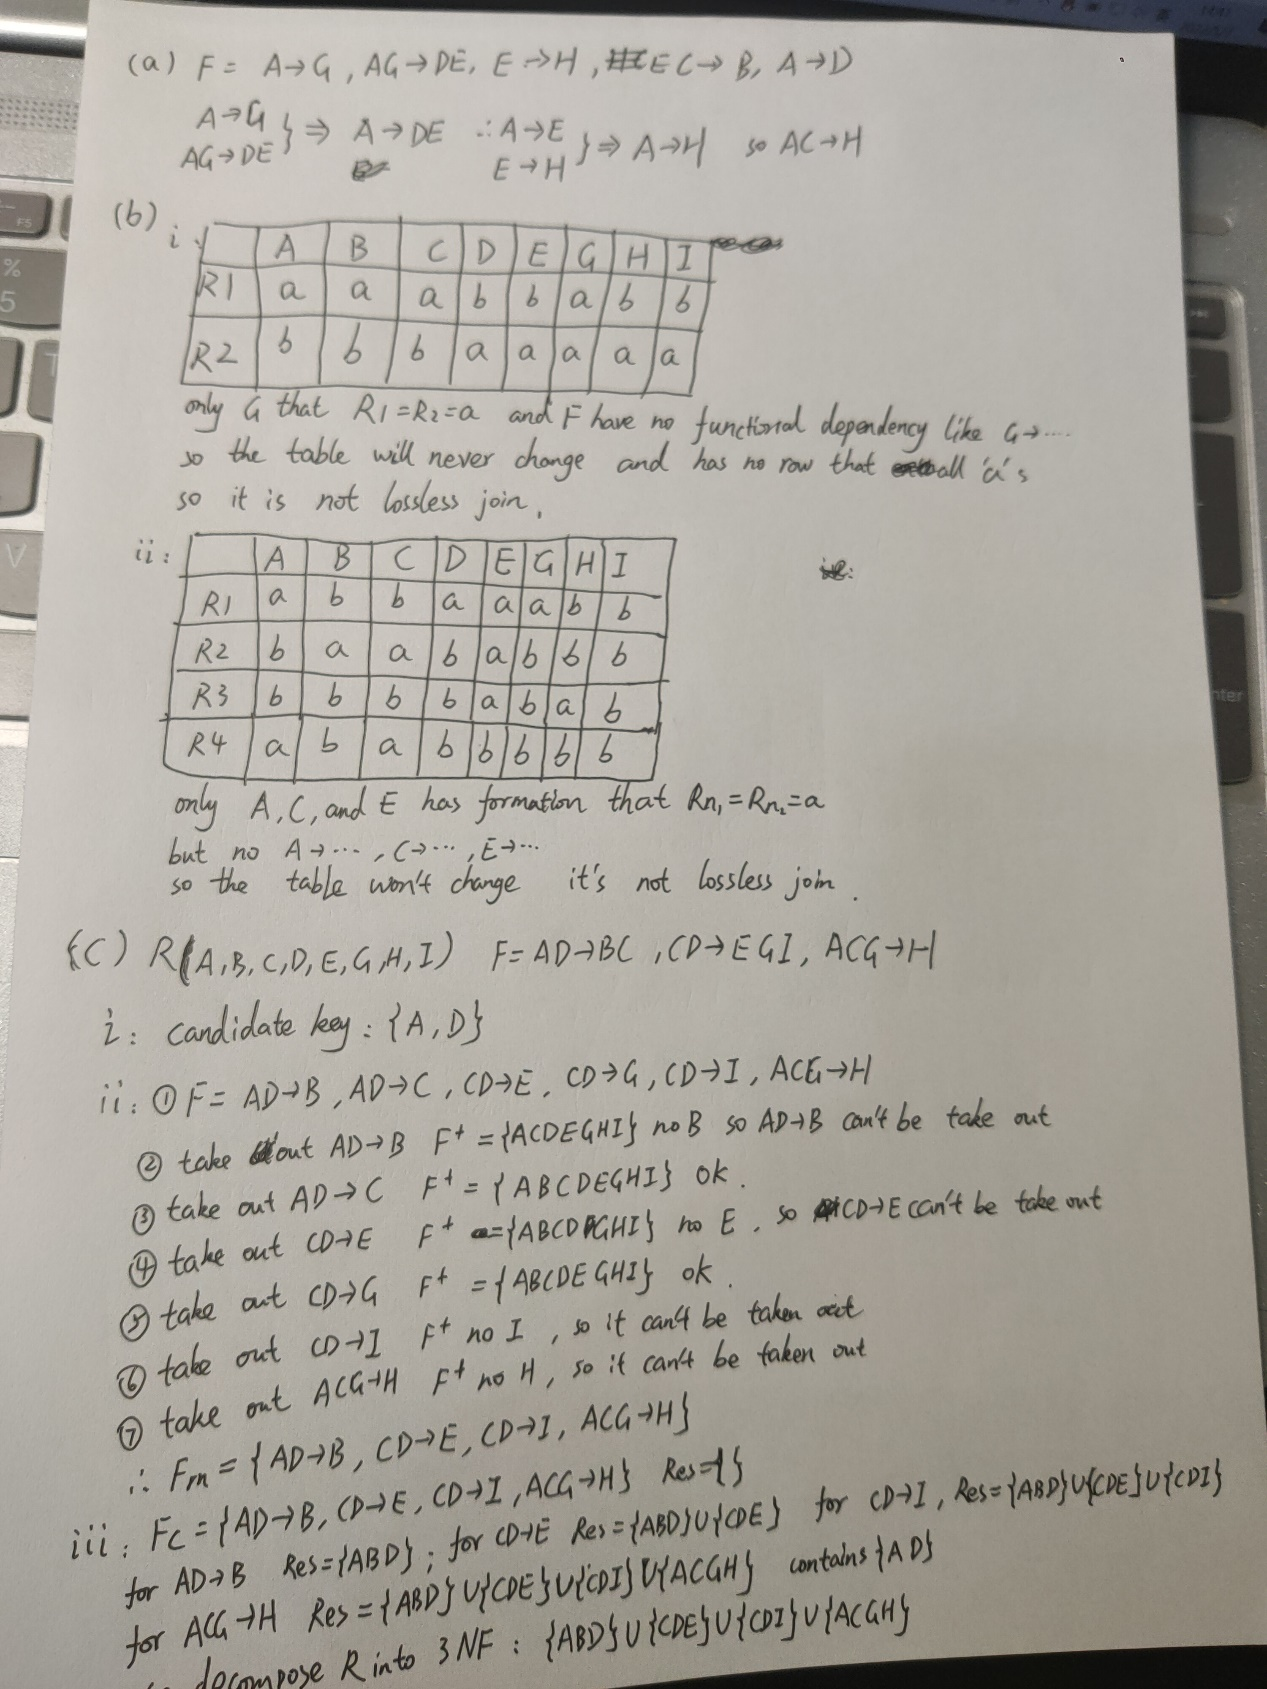 (a) F = A→G, AG→DE, E→H, EC→B, A→D
A→G
AG→DE } ⇒ A→DE ∴ A→E
E→H } ⇒ A→H so AC→H
(b)
i:
A B C D E G H I
R1 a a a b b a b b
R2 b b b a a a a a
only G that R1=R2=a and F have no functional dependency like G→....
so the table will never change and has no row that all 'a's
so it is not lossless join.
ii:
A B C D E G H I
R1 a b b a a a b b
R2 b a a b a b b b
R3 b b b b a b a b
R4 a b a b b b b b
only A, C, and E has formation that Rn₁=Rn₂=a
but no A→..., C→..., E→...
so the table won't change it's not lossless join.
(C) R(A,B,C,D,E,G,H,I) F=AD→BC, CD→EGI, ACG→H
i: candidate key: {A,D}
ii: ① F= AD→B, AD→C, CD→E, CD→G, CD→I, ACG→H
② take out AD→B F⁺={ACDEGHI} no B so AD→B can't be take out
③ take out AD→C F⁺={ABCDEGHI} ok.
④ take out CD→E F⁺={ABCDGHI} no E, so CD→E can't be take out
⑤ take out CD→G F⁺={ABCDEGHI} ok.
⑥ take out CD→I F⁺ no I, so it can't be taken out
⑦ take out ACG→H F⁺ no H, so it can't be taken out
∴ Fm={AD→B, CD→E, CD→I, ACG→H}
iii: Fc={AD→B, CD→E, CD→I, ACG→H} Res={}
for AD→B Res={ABD}; for CD→E Res={ABD}∪{CDE} for CD→I, Res={ABD}∪{CDE}∪{CDI}
for ACG→H Res={ABD}∪{CDE}∪{CDI}∪{ACGH} contains {AD}
decompose R into 3NF: {ABD}∪{CDE}∪{CDI}∪{ACGH}